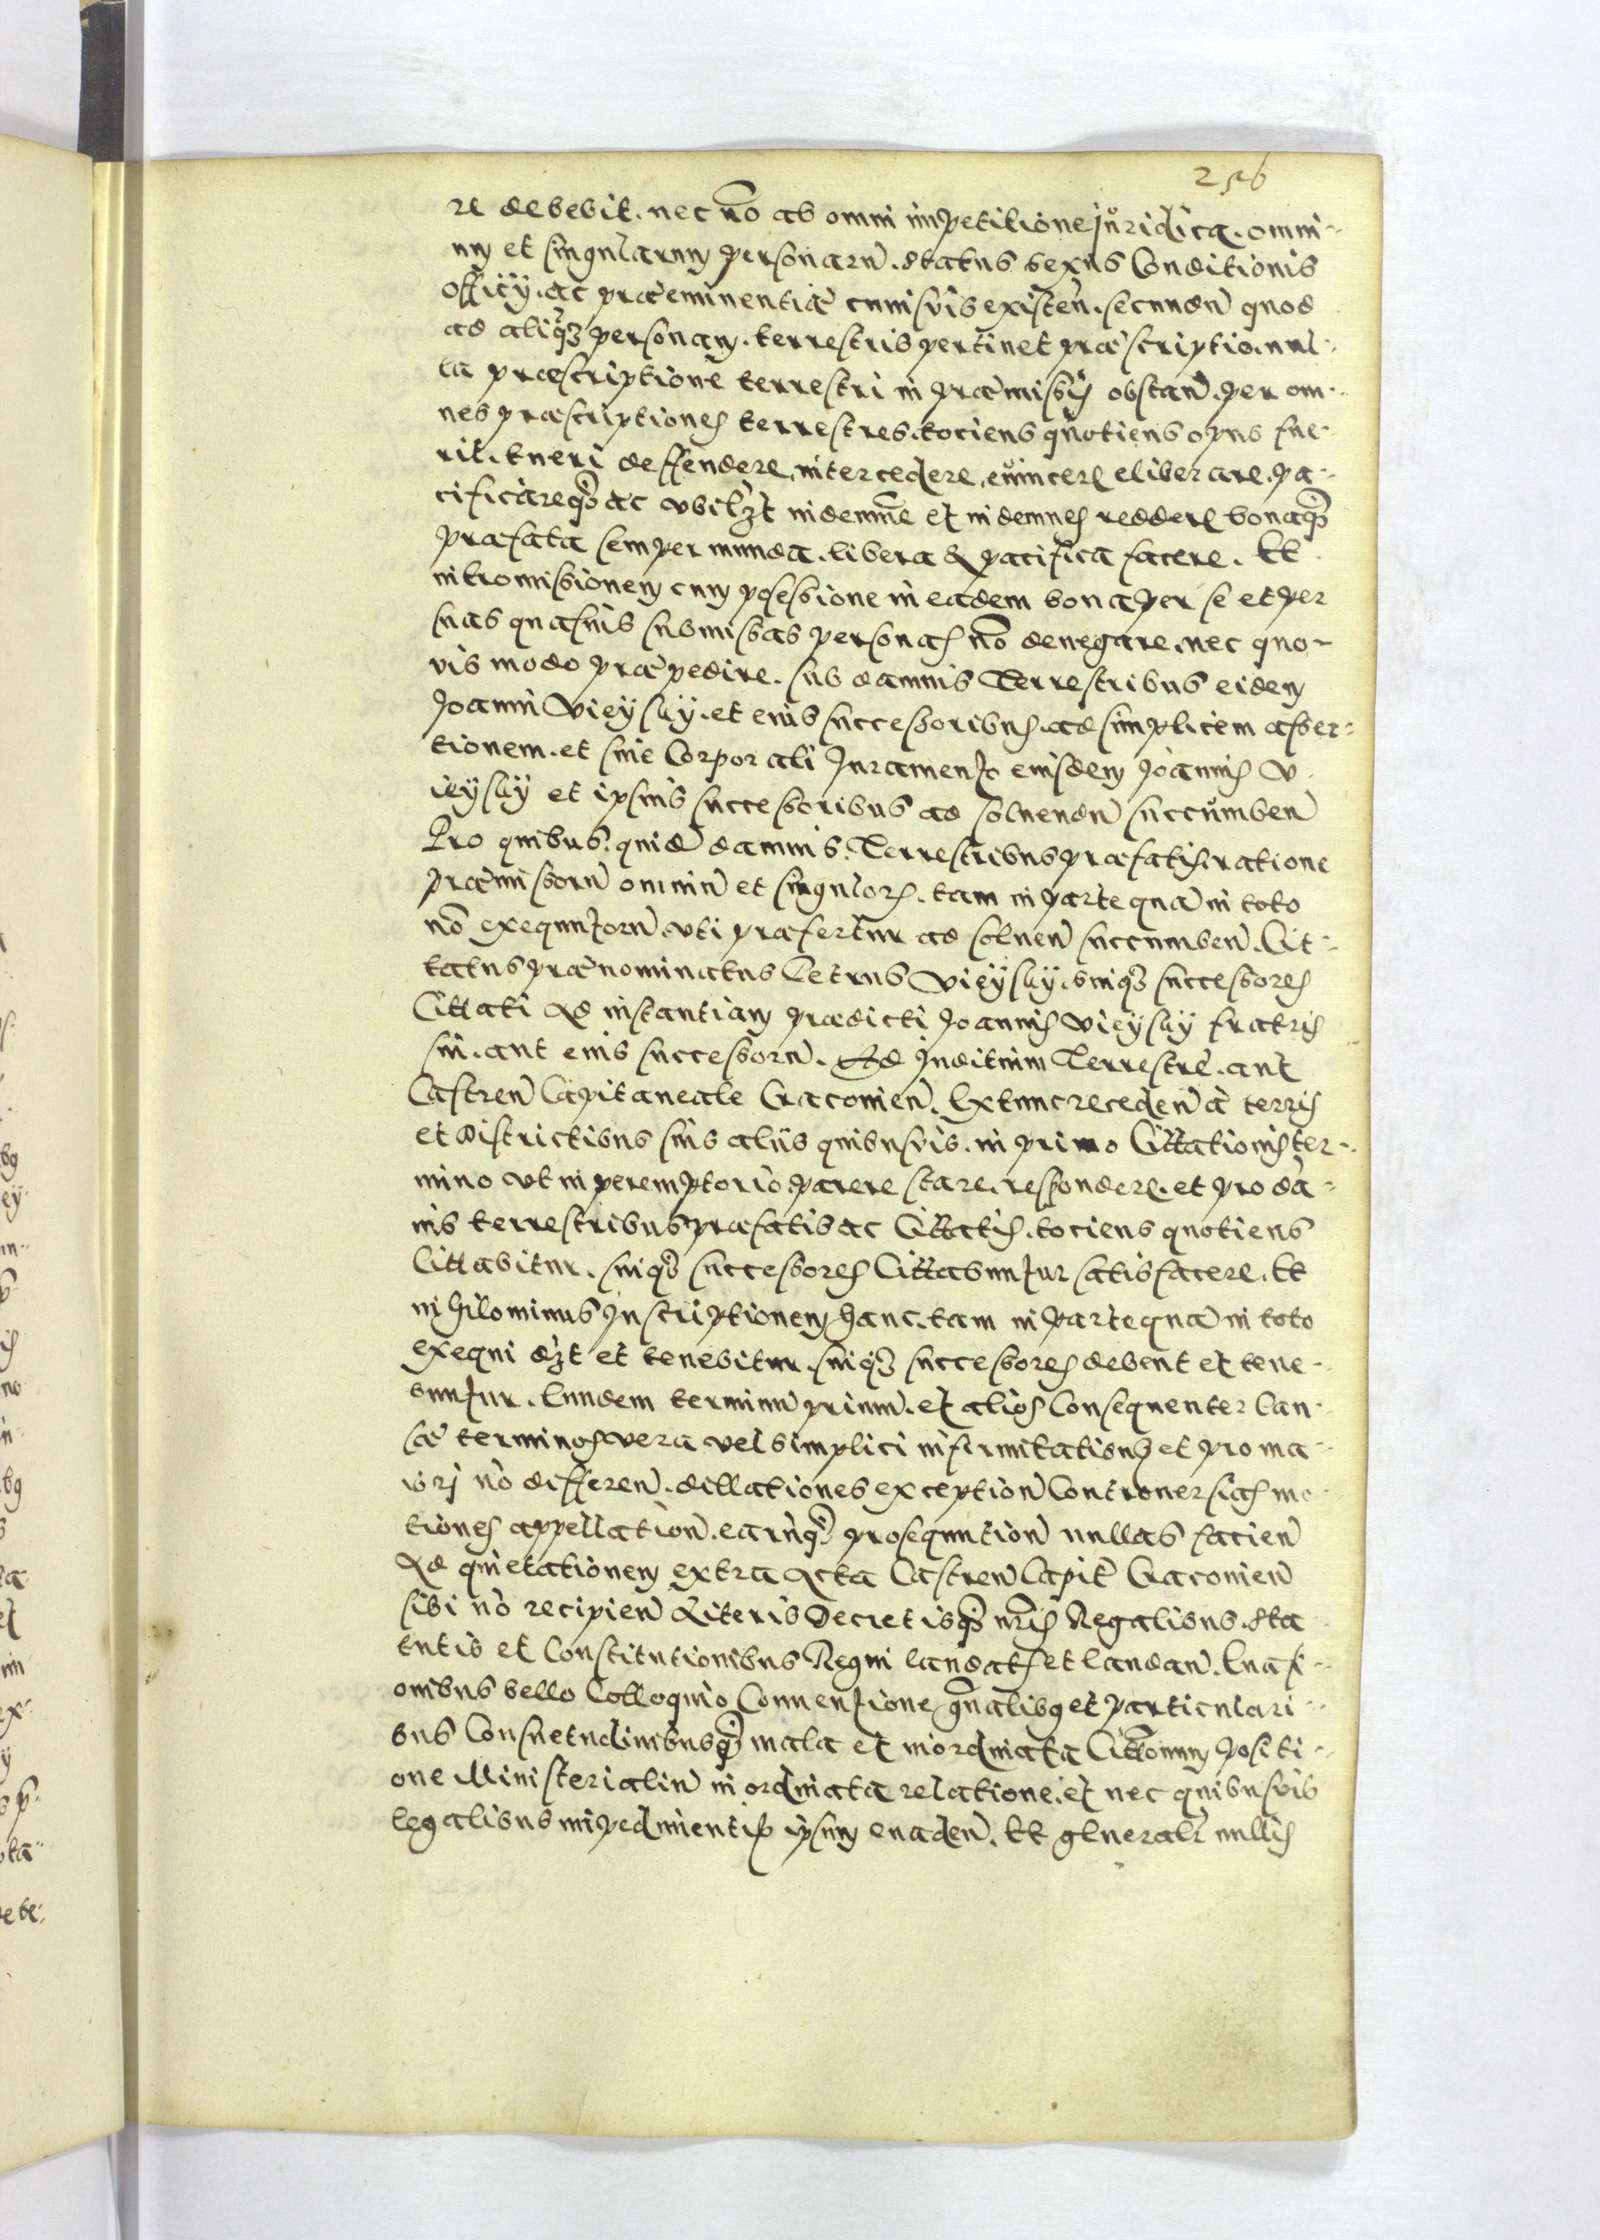 256
re debebit. nec nō ab omni impetitione juridica. omni-
um et singularum personarū. status sexus Conditionis
officÿ. ac præeminentiæ cuiusvis existeñ. secundū quod
ad aliq̃ꝫ personam. terrestris pertinet præscriptio. nul-
la præscriptione terrestri in præmissis obstañ. per om-
nes præscriptiones terrestres. tociens quotiens opus fue-
rit. tueri deffendere, intercedere, euincere eliberare. pa-
cificareq3 ac vbilꝫt indemnē et indemnes reddere bonaq3
præfata semper munda. libera & pacifica facere. Et
intromissionem cum possessione in eadem bona per se et per
suas quasuis submissas personas nō denegare. nec quo-
vis modo præpedire. sub damnis Terrestribus eidem
Joanni Vieÿskÿ. et eius successoribus. ad simplicem asser-
tionem. et sine Corporali Juramento eiusdem Joannis V-
ieÿskÿ et ipsius successoribus ad soluendū succumbeñ
Pro quibus. quidē damnis. Terrestribus præfatis. ratione
præmissorū omniū et singulorꝫ. tam in parte quā in toto
nō exequutorū. vti præfertur ad solueñ succumbeñ. Cit-
tatus prænominatus Petrus Vieÿskÿ. suiq3 successores
Cittati Ad instantiam prædicti Joannis Vieÿskÿ fratris
sui. aut eius successorū. Ad Juditium Terrestre. aut
Castreñ Capitaneale Cracouieñ. Extunc recedeñ à terris
et districtibus suis alijs quibusvis. in primo Cittationis ter-
mino vt in peremptorio parere stare. respondere. et pro dā-
nis terrestribus præfatis ac Cittatis. tociens quotiens
Cittabitur. suiq3 successores Cittabuntur satisfacere. Et
nihilominus Inscriptionem hanc. tam in parte quā in toto
exequi dꝫt et tenebitur. suiq3 successores debent et tene-
buntur. Eundem terminū primū. et alios Consequenter Cau-
sæ terminos vera vel simplici infirmitatibus et pro ma-
iori nō differeñ. dillationes exceptioñ Controuersias mo-
tiones appellatioñ. earūq3 prosequutioñ nullas facieñ
Ad quietationem extra Acta Castreñ Capit̄ Cracouieñ
sibi nō recipieñ Literis Decretisq3 nr̄is Regalibus. Sta
tutis et Constitutionibus Regni laudatis et laudañ. Euasi-
onibus bello Colloquio Conuentione gn̄alibꝫ et particulari-
bus Consuetudinibusq3 mala et inordinata Cittōnum positi-
one Ministerialiū inordinata relatione. et nec quibusvis
legalibus impedimentis ipsum euadeñ. Et generalr̄ nullis